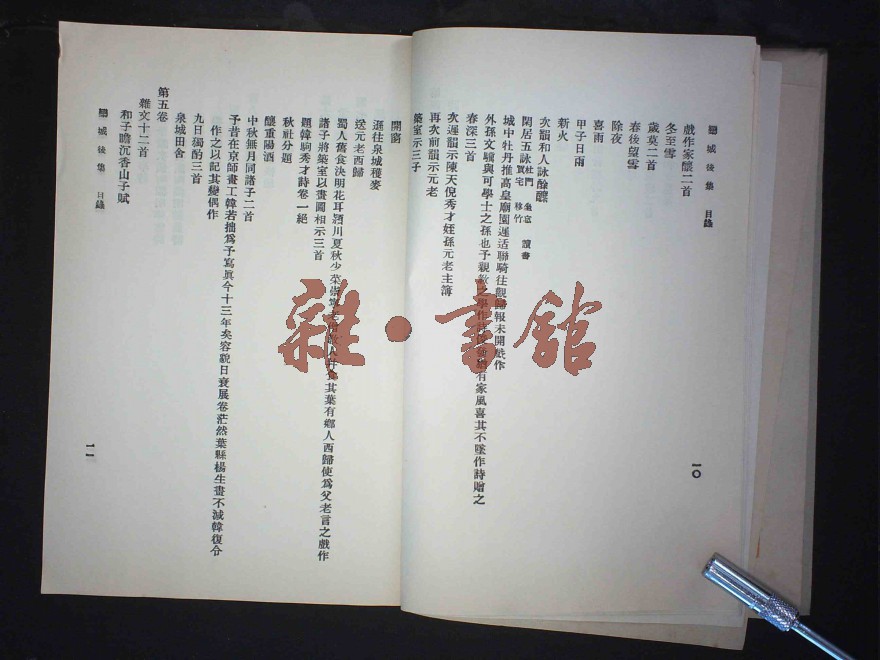 欒城後集 目錄
戲作家釀二首
冬至雪
歲莫二首
春後望雪
除夜
喜雨
甲子日雨
新火
次韻和人詠酴醾
閑居五詠杜門 坐忘 讀書 買宅 移竹
城中牡丹推高皇廟園遲适聯騎往觀歸報未開戲作
外孫文驥與可學士之孫也予親教之學作 有家風喜其不墜作詩贈之
春深三首
次遲韻示陳天倪秀才姪孫元老主簿
再次前韻示元老
築室示三子
一〇
開窗
遜往泉城穫麥
送元老西歸
蜀人舊食決明花耳潁川夏秋少菜崇 其葉有鄉人西歸使爲父老言之戲作
諸子將築室以畫圖相示三首
題韓駒秀才詩卷一絕
秋社分題
釀重陽酒
中秋無月同諸子二首
予昔在京師畫工韓若拙爲予寫眞今十三年矣容貌日衰展卷茫然葉縣楊生畫不減韓復令
作之以記其變偶作
九日獨酌三首
泉城田舍
第五卷
雜文十二首
和子瞻沉香山子賦
欒城後集 目錄
一一
雜·書館